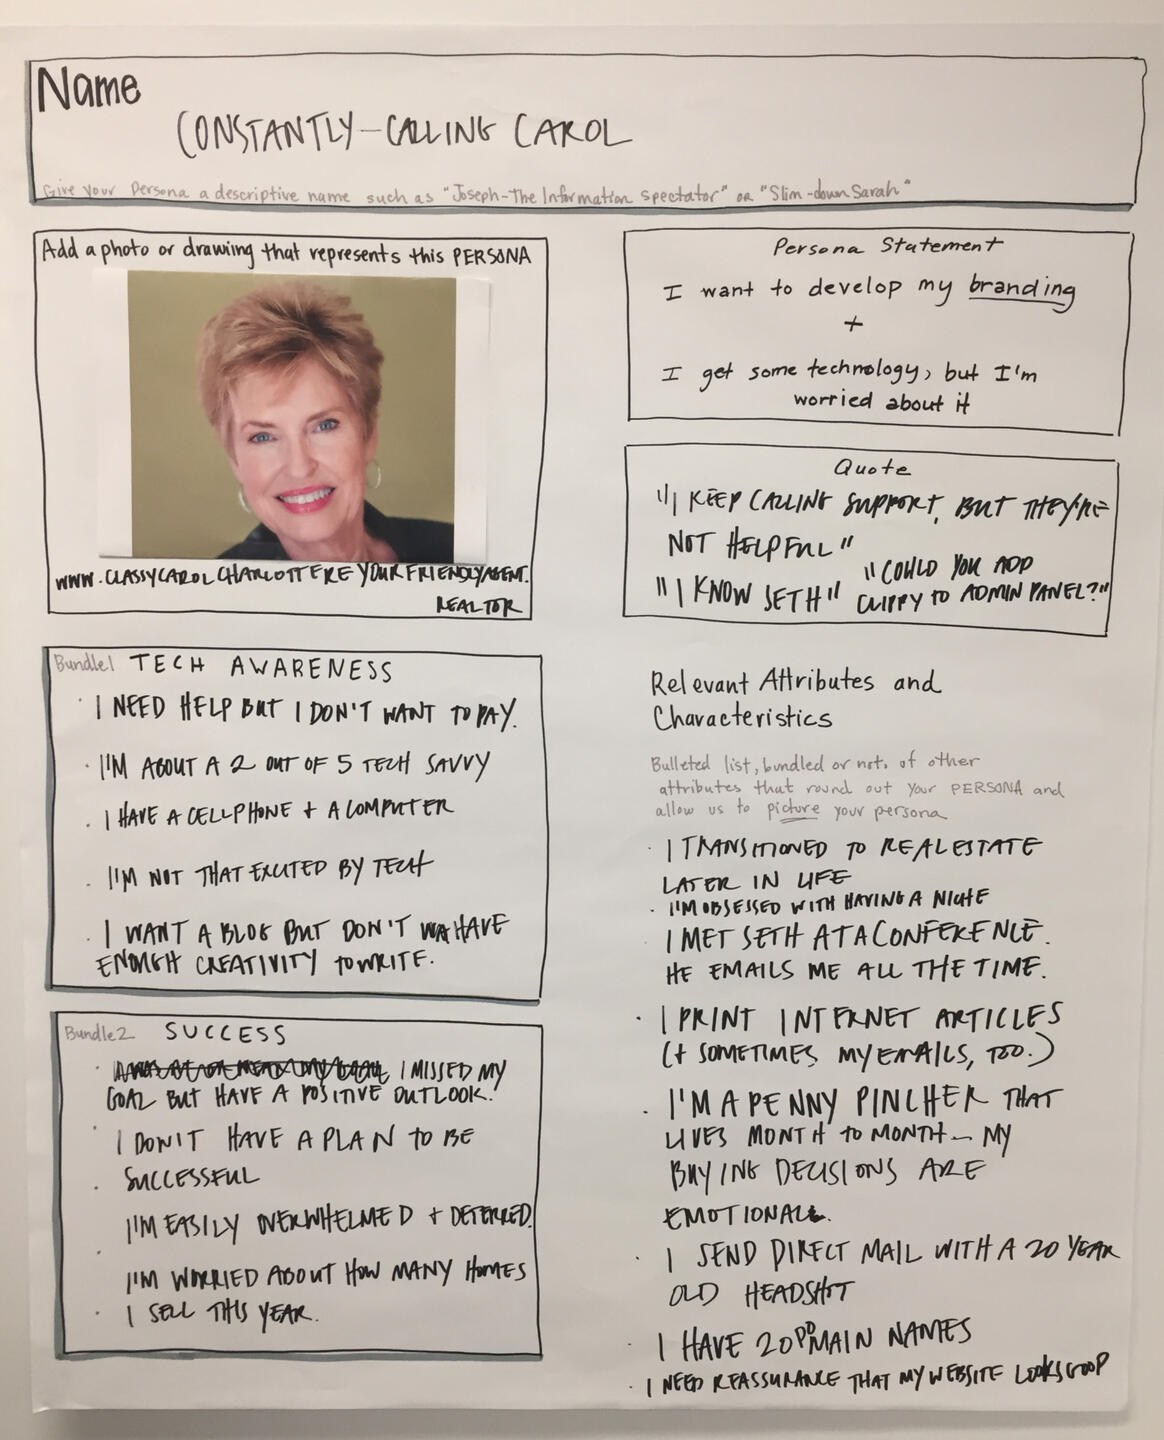 Name
CONSTANTLY-CALLING CAROL
Give your Persona a descriptive name such as "Joseph-The Information Spectator" or "Slim-down Sarah"
Add a photo or drawing that represents this PERSONA
WWW.CLASSYCAROLCHARLOTTEREYOURFRIENDLYAGENT.
REALTOR
Persona Statement
I want to develop my branding
+
I get some technology, but I'm
worried about it
Quote
"I KEEP CALLING SUPPORT, BUT THEY'RE
NOT HELPFUL"
"I KNOW SETH"
"COULD YOU ADD
CLIPPY TO ADMIN PANEL?"
Bundle 1 TECH AWARENESS
· I NEED HELP BUT I DON'T WANT TO PAY.
· I'M ABOUT A 2 OUT OF 5 TECH SAVVY
· I HAVE A CELLPHONE + A COMPUTER
· I'M NOT THAT EXCITED BY TECH
· I WANT A BLOG BUT DON'T HAVE
ENOUGH CREATIVITY TO WRITE.
Bundle 2 SUCCESS
· I MISSED MY
GOAL BUT HAVE A POSITIVE OUTLOOK.
· I DON'T HAVE A PLAN TO BE
· SUCCESSFUL
I'M EASILY OVERWHELMED + DETERRED.
· I'M WORRIED ABOUT HOW MANY HOMES
· I SELL THIS YEAR.
Relevant Attributes and
Characteristics
Bulleted list, bundled or not, of other
attributes that round out your PERSONA and
allow us to picture your persona
· I TRANSITIONED TO REAL ESTATE
LATER IN LIFE
· I'M OBSESSED WITH HAVING A NICHE
· I MET SETH AT A CONFERENCE.
HE EMAILS ME ALL THE TIME.
· I PRINT INTERNET ARTICLES
(+ SOMETIMES MY EMAILS, TOO.)
· I'M A PENNY PINCHER THAT
LIVES MONTH TO MONTH - MY
BUYING DECISIONS ARE
EMOTIONAL.
· I SEND DIRECT MAIL WITH A 20 YEAR
OLD HEADSHOT
· I HAVE 20 DOMAIN NAMES
· I NEED REASSURANCE THAT MY WEBSITE LOOKS GOOD